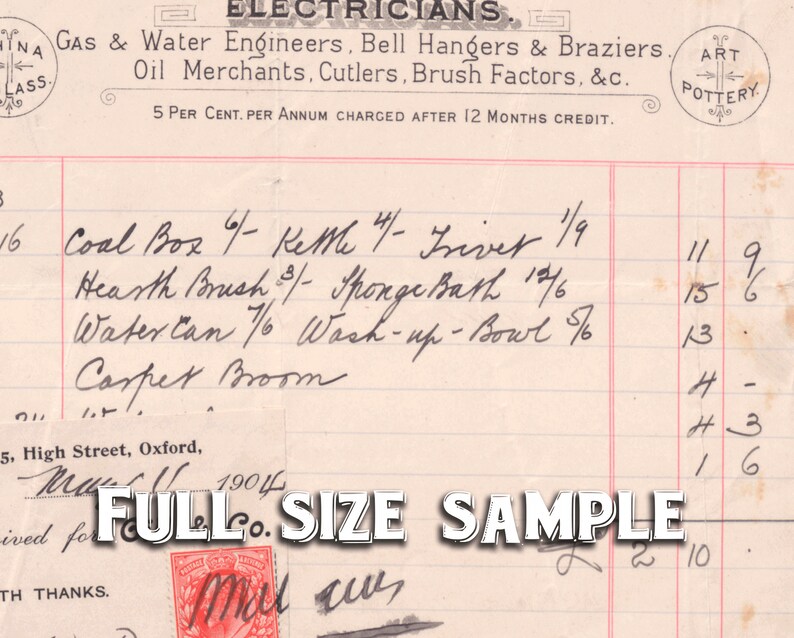 ELECTRICIANS.
CHINA GLASS.
GAS & WATER ENGINEERS, BELL HANGERS & BRAZIERS.
OIL MERCHANTS, CUTLERS, BRUSH FACTORS, &c.
ART POTTERY.
5 PER CENT. PER ANNUM CHARGED AFTER 12 MONTHS CREDIT.
16 Coal Box 6/- Kettle 4/- Trivet 1/9 11 9
Hearth Brush 3/- Sponge Bath 12/6 15 6
Water Can 7/6 Wash-up-Bowl 5/6 13 .
Carpet Broom 4 -
4 3
5, High Street, Oxford,
1 6
May 11 1904
FULL SIZE SAMPLE
ived for & Co.
£ 2 10 .
POSTAGE & REVENUE
TH THANKS.